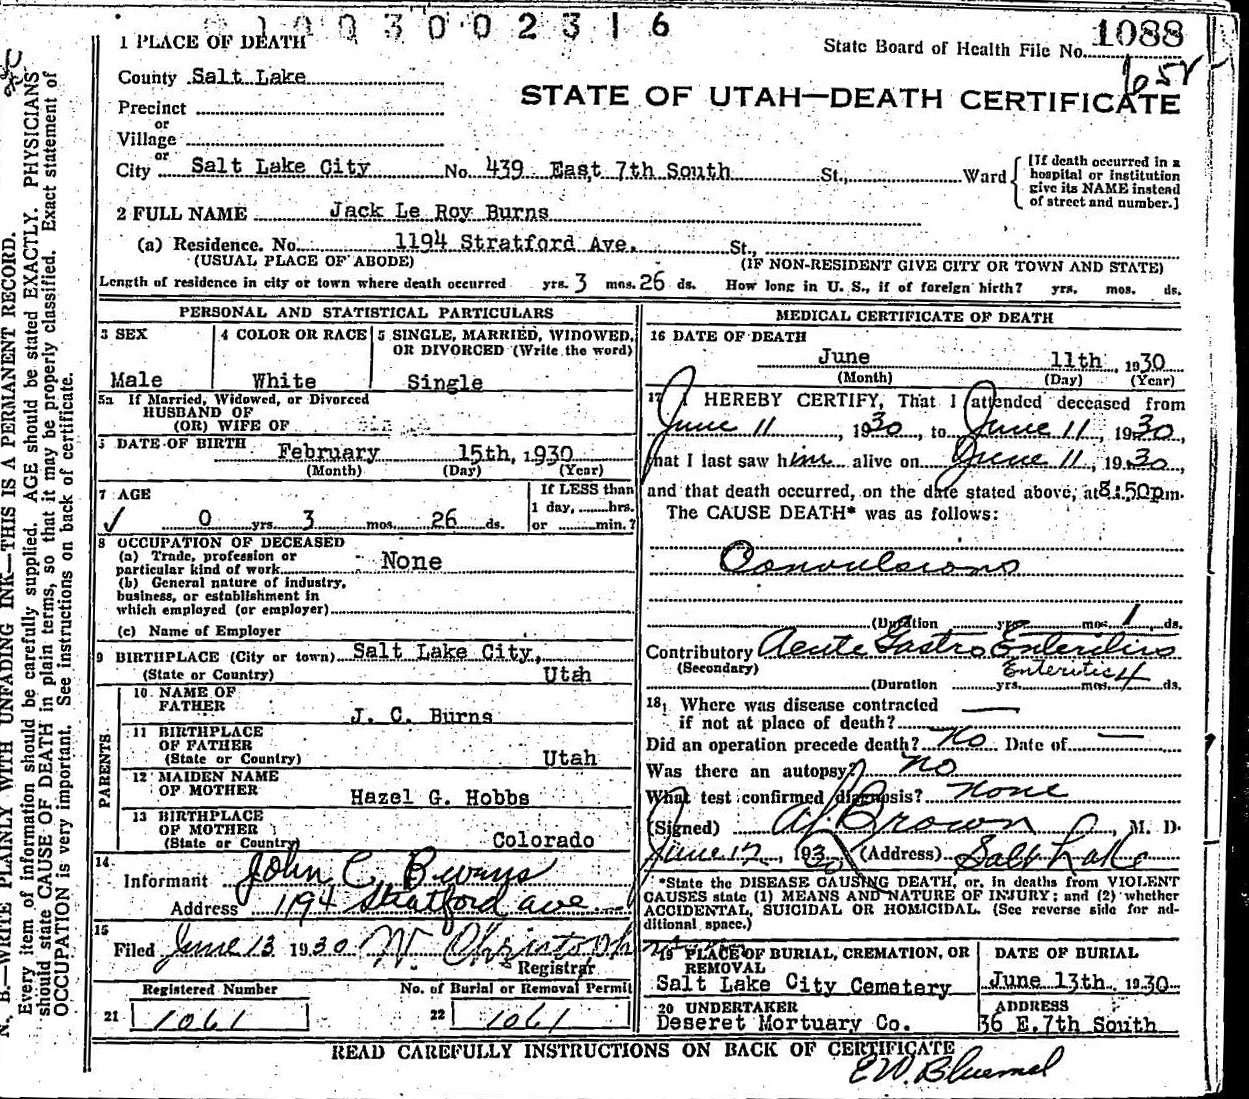 1003002316
1088
1 PLACE OF DEATH
State Board of Health File No.
County Salt Lake
STATE OF UTAH—DEATH CERTIFICATE
Precinct
or
Village
or
City Salt Lake City No. 439 East 7th South St., Ward
[If death occurred in a
hospital or institution
give its NAME instead
of street and number.]
2 FULL NAME Jack Le Roy Burns
(a) Residence. No. 1194 Stratford Ave. St.,
(USUAL PLACE OF ABODE) (IF NON-RESIDENT GIVE CITY OR TOWN AND STATE)
Length of residence in city or town where death occurred yrs. 3 mos. 26 ds. How long in U. S., if of foreign birth? yrs. mos. ds.
PERSONAL AND STATISTICAL PARTICULARS
3 SEX
Male
4 COLOR OR RACE
White
5 SINGLE, MARRIED, WIDOWED,
OR DIVORCED (Write the word)
Single
5a If Married, Widowed, or Divorced
HUSBAND OF
(OR) WIFE OF
DATE OF BIRTH February 15th, 1930
(Month) (Day) (Year)
7 AGE
0 yrs. 3 mos. 26 ds.
If LESS than
1 day, hrs.
or min.?
8 OCCUPATION OF DECEASED
(a) Trade, profession or
particular kind of work None
(b) General nature of industry,
business, or establishment in
which employed (or employer)
(c) Name of Employer
9 BIRTHPLACE (City or town) Salt Lake City,
(State or Country) Utah
PARENTS
10 NAME OF
FATHER J. C. Burns
11 BIRTHPLACE
OF FATHER
(State or Country) Utah
12 MAIDEN NAME
OF MOTHER Hazel G. Hobbs
13 BIRTHPLACE
OF MOTHER
(State or Country) Colorado
14
Informant John C Burns
Address 1194 Stratford ave
15
Filed June 13 1930
Registrar
Registered Number
21 1061
No. of Burial or Removal Permit
22 1061
MEDICAL CERTIFICATE OF DEATH
16 DATE OF DEATH
June 11th, 1930
(Month) (Day) (Year)
17 I HEREBY CERTIFY, That I attended deceased from
June 11, 1930, to June 11, 1930,
that I last saw him alive on June 11, 1930,
and that death occurred, on the date stated above, at 8:50p.m.
The CAUSE DEATH* was as follows:
Convulsions
(Duration yrs. mos. 1 ds.
Contributory Acute Gastro Enteritis
(Secondary) Enteritis
(Duration yrs. mos. 4 ds.
18 Where was disease contracted
if not at place of death?
Did an operation precede death? No Date of —
Was there an autopsy? No
What test confirmed diagnosis? None
(Signed) Brown, M. D.
June 12, 1930 (Address) Salt Lake
*State the DISEASE CAUSING DEATH, or, in deaths from VIOLENT
CAUSES state (1) MEANS AND NATURE OF INJURY; and (2) whether
ACCIDENTAL, SUICIDAL OR HOMICIDAL. (See reverse side for ad-
ditional space.)
19 PLACE OF BURIAL, CREMATION, OR
REMOVAL
Salt Lake City Cemetery
DATE OF BURIAL
June 13th 1930
20 UNDERTAKER
Deseret Mortuary Co.
ADDRESS
36 E. 7th South
READ CAREFULLY INSTRUCTIONS ON BACK OF CERTIFICATE
N. B.—WRITE PLAINLY WITH UNFADING INK—THIS IS A PERMANENT RECORD.
Every item of information should be carefully supplied. AGE should be stated EXACTLY. PHYSICIANS
should state CAUSE OF DEATH in plain terms, so that it may be properly classified. Exact statement of
OCCUPATION is very important. See instructions on back of certificate.